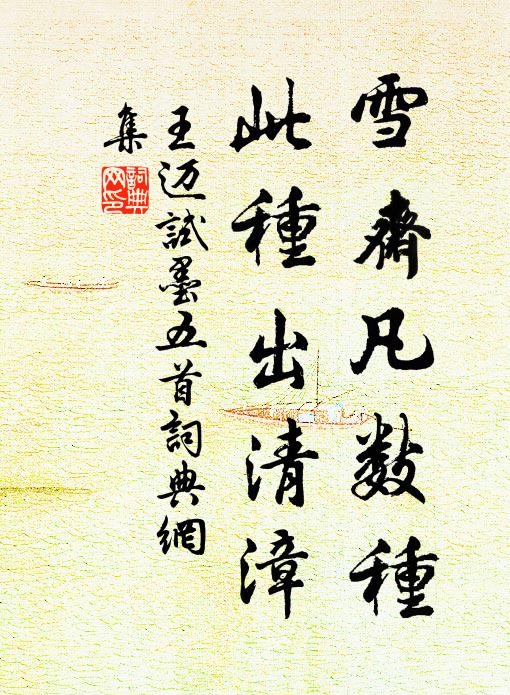 雪齋凡数種
此種出清漳
王迈試墨五首詞典網
集
詞典網印